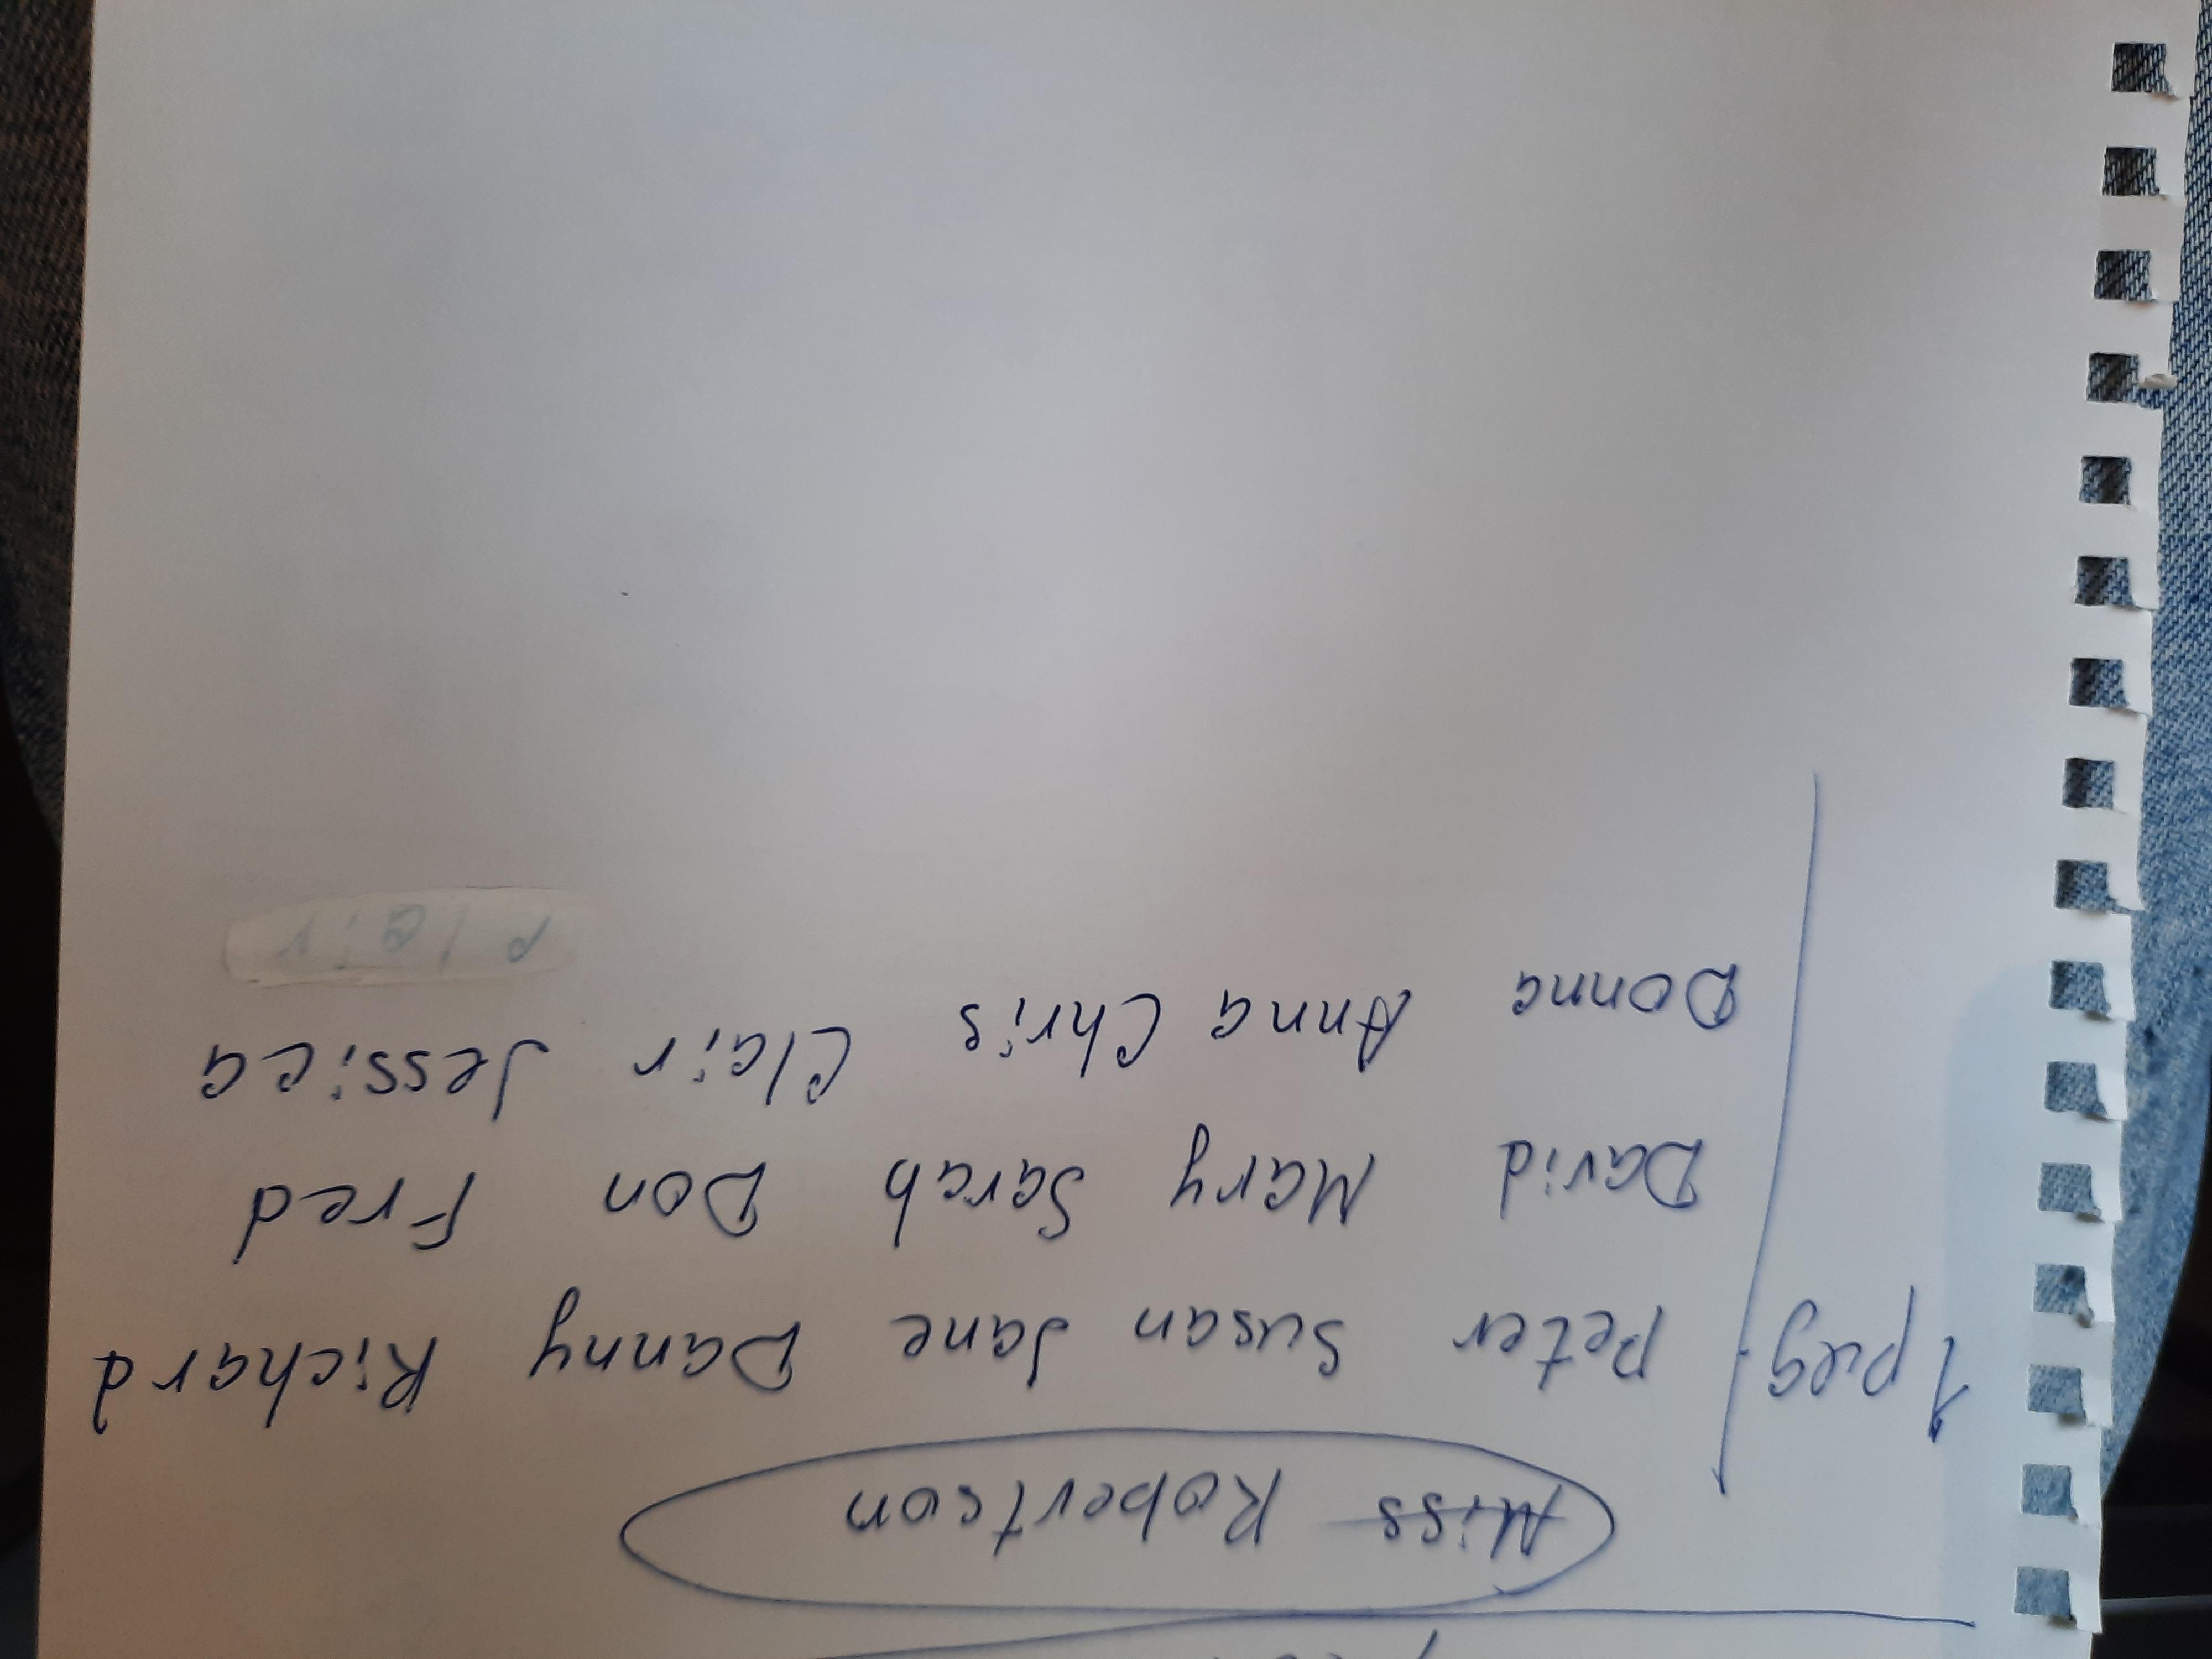 Miss Robertson
1 ряд. Peter Susan Jane Danny Richard
David Mary Sarah Don Fred
Donna Anna Chris Clair Jessica